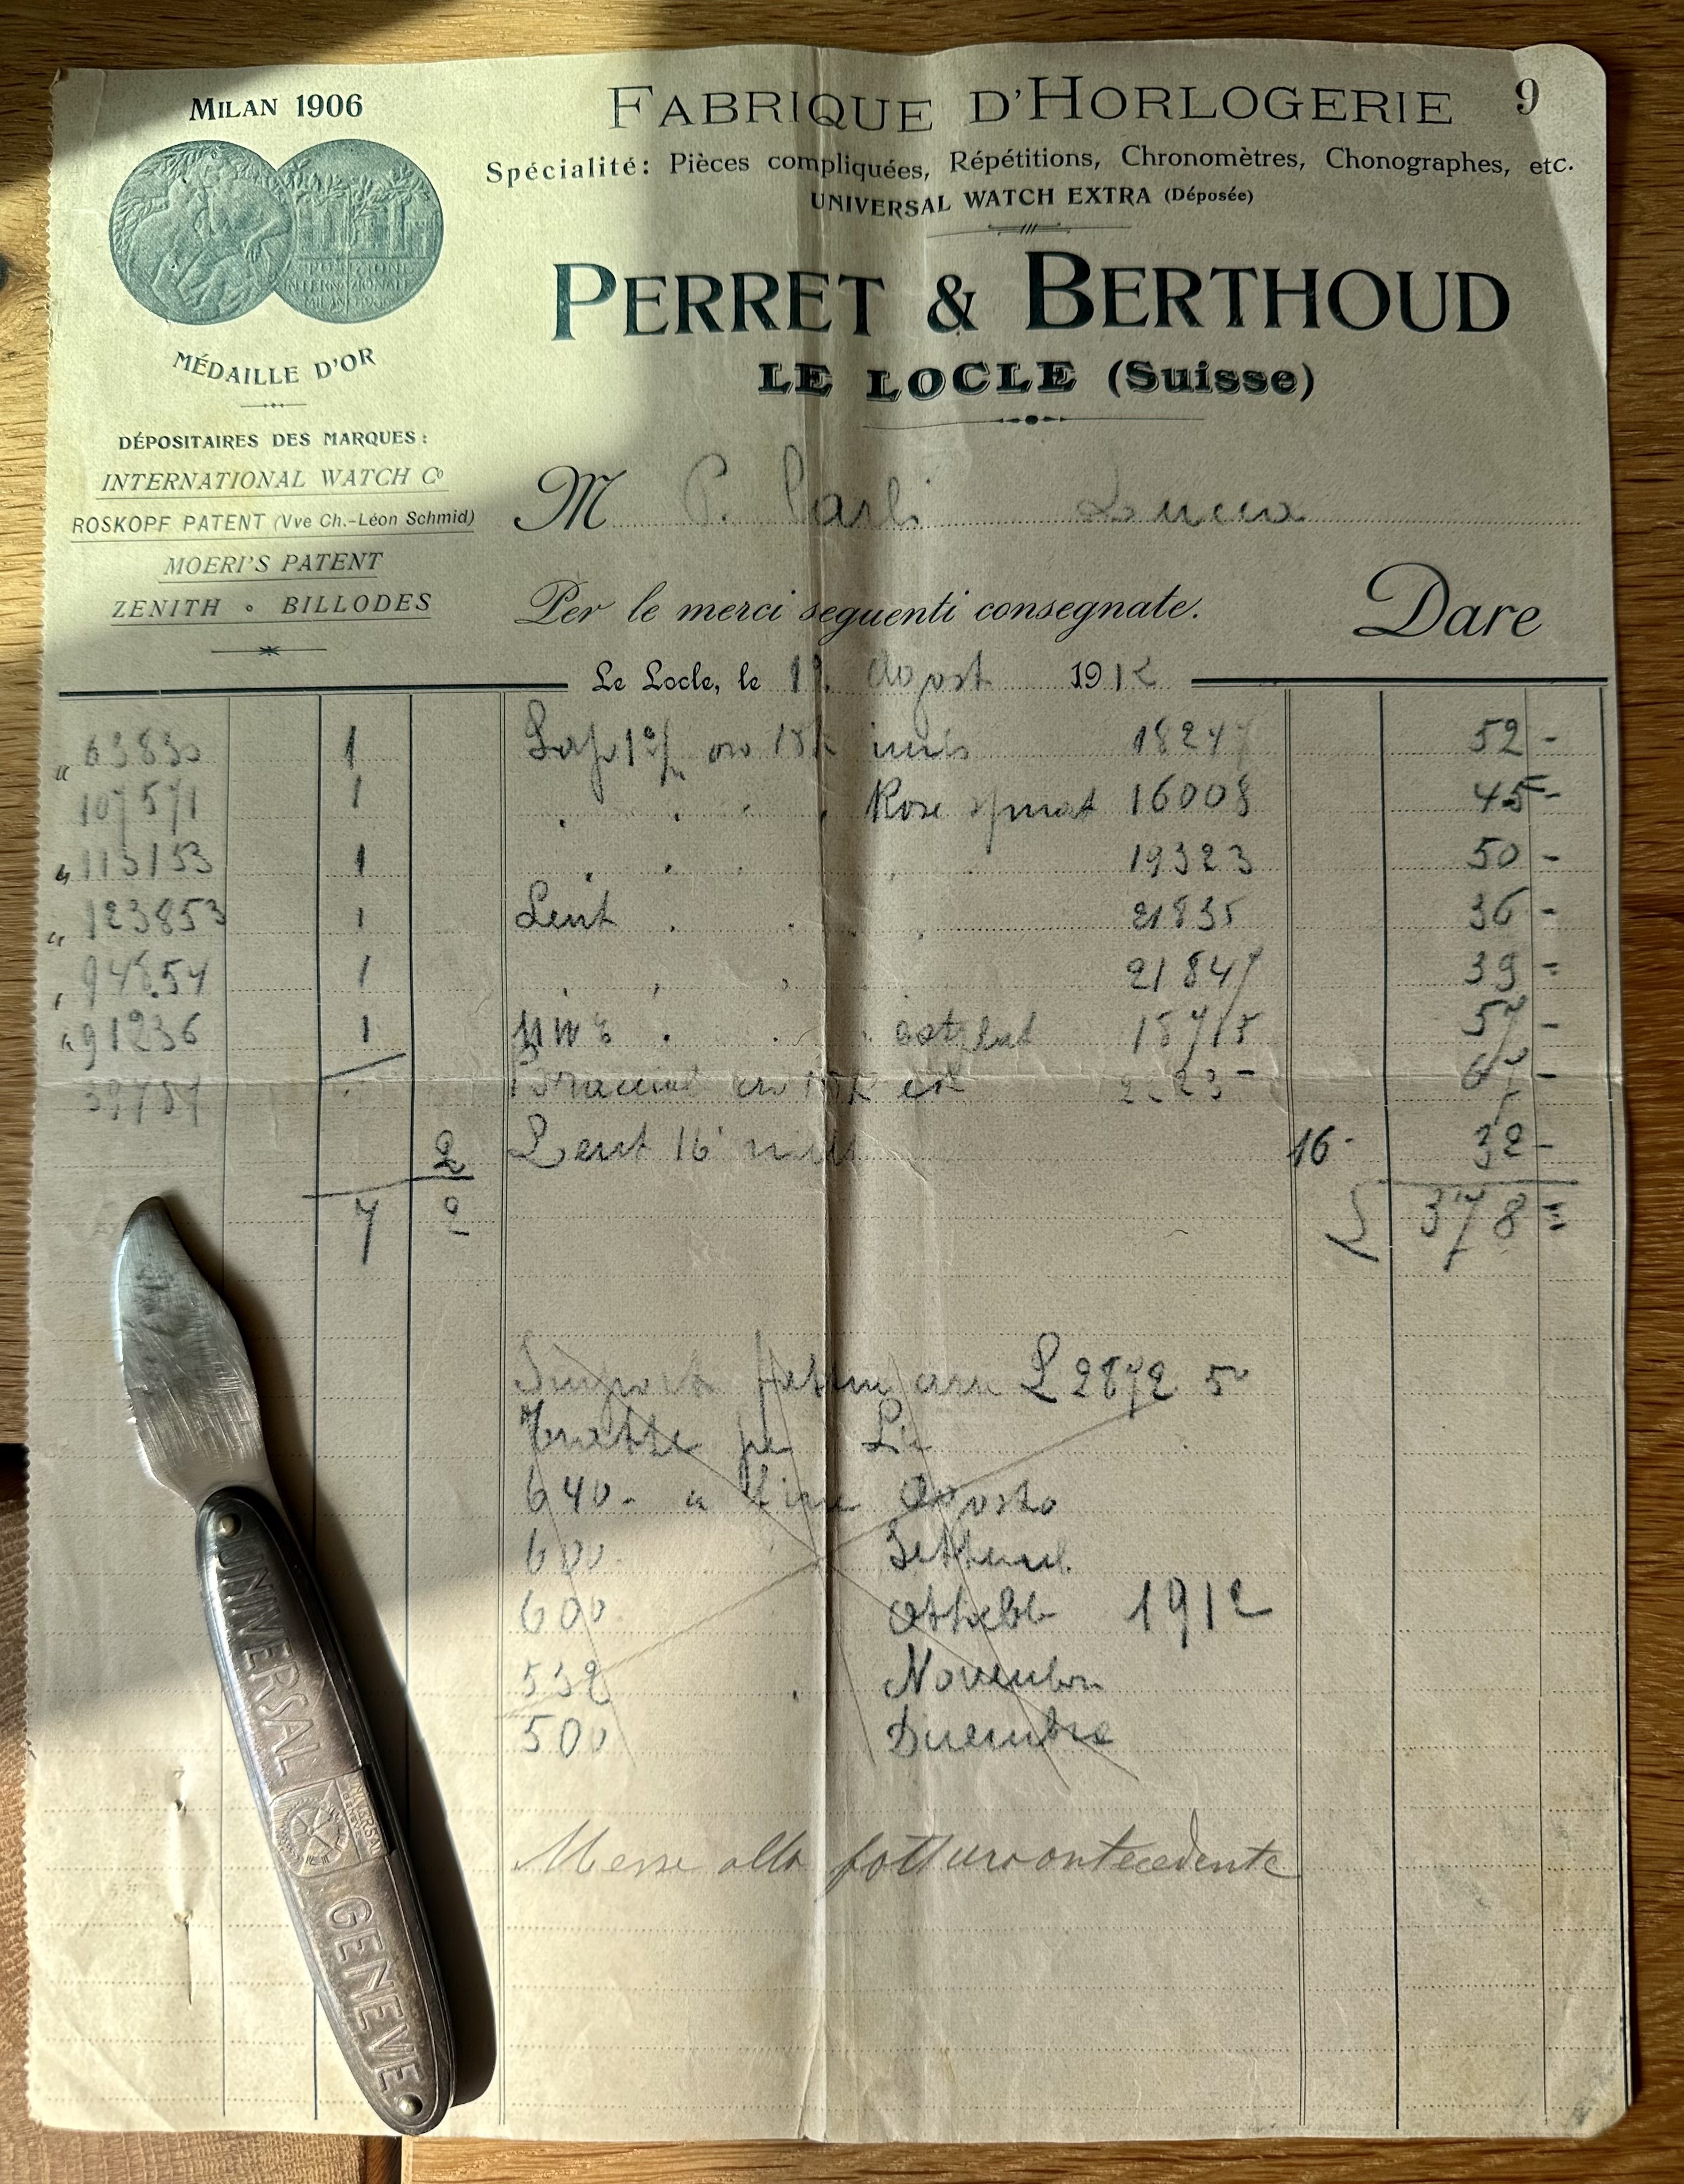 MILAN 1906
ESPOSIZIONE
INTERNAZIONALE
MILANO 1906
MÉDAILLE D'OR
DÉPOSITAIRES DES MARQUES:
INTERNATIONAL WATCH Cº
ROSKOPF PATENT (Vve Ch.-Léon Schmid)
MOERI'S PATENT
ZENITH ∘ BILLODES
FABRIQUE D'HORLOGERIE 9
Spécialité: Pièces compliquées, Répétitions, Chronomètres, Chonographes, etc.
UNIVERSAL WATCH EXTRA (Déposée)
PERRET & BERTHOUD
LE LOCLE (Suisse)
M P. Carli Lucca
Per le merci seguenti consegnate. Dare
Le Locle, le 19. Agost 1912
63830 1 oro 18k 18247 52 -
107571 1 Rose 16008 45 -
" 113153 1 19323 50 -
" 123853 1 Lent 21835 36 -
94854 1 21847 39 =
" 91236 1 15715 57 -
oro 67 -
2 Lent 16 16 - 32 -
7 2 L 378 =
Import fattura L 2872 50
Tratte per Lir
640 - a fine Agosto
600 Settemb.
600 Ottobb 1912
532 Novembre
500 Dicembre
Messe alla fattura antecedente
UNIVERSAL
UNIVERSAL
GENÈVE
GENÈVE